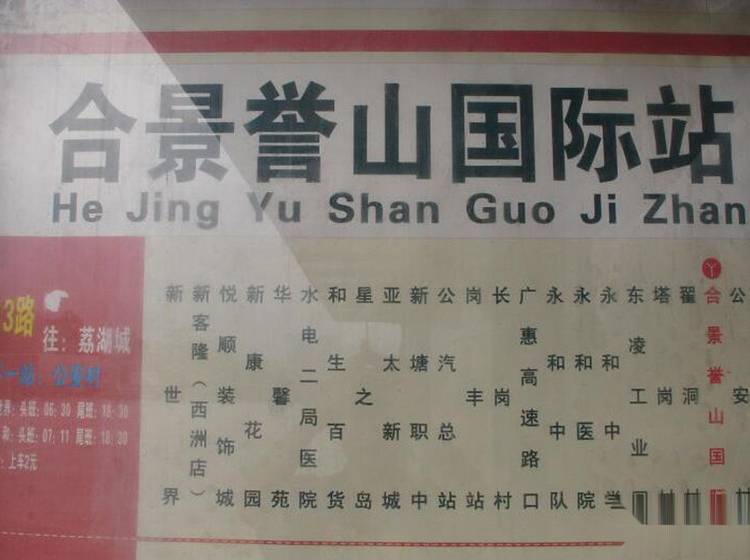 合景誉山国际站
He Jing Yu Shan Guo Ji Zhan
3路
往：荔湖城
一站：公安村
世界：头班：06:30 尾班：18:30
和：头班：07:11 尾班：18:30
：上车2元
新世界
新客隆（西洲店）
悦顺装饰城
新康花园
华馨苑
水电二局医院
和生百货
星之岛
亚太新城
新塘职中
公汽总站
岗丰站
长岗村
广惠高速路口
永和中队
永和医院
永和中学
东凌工业
塔岗
翟洞
合景誉山国际
公安